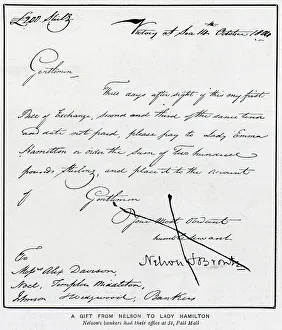 £200 Ster.g
Victory at Sea 14th October 1804
Gentlemen
Three days after sight of this my first
Bill of Exchange, second and third of the same tenor
and date not paid, please pay to Lady Emma
Hamilton or order the sum of Two hundred
pounds Sterling, and place it to the account
of
Gentlemen
Your Most Obedient
humble servant
Nelson & Bronte
To
Messrs Alex Davison,
Noel, Templer Middleton,
Johnson Wedgwood, Bankers
A GIFT FROM NELSON TO LADY HAMILTON
Nelson's bankers had their office at 34, Pall Mall